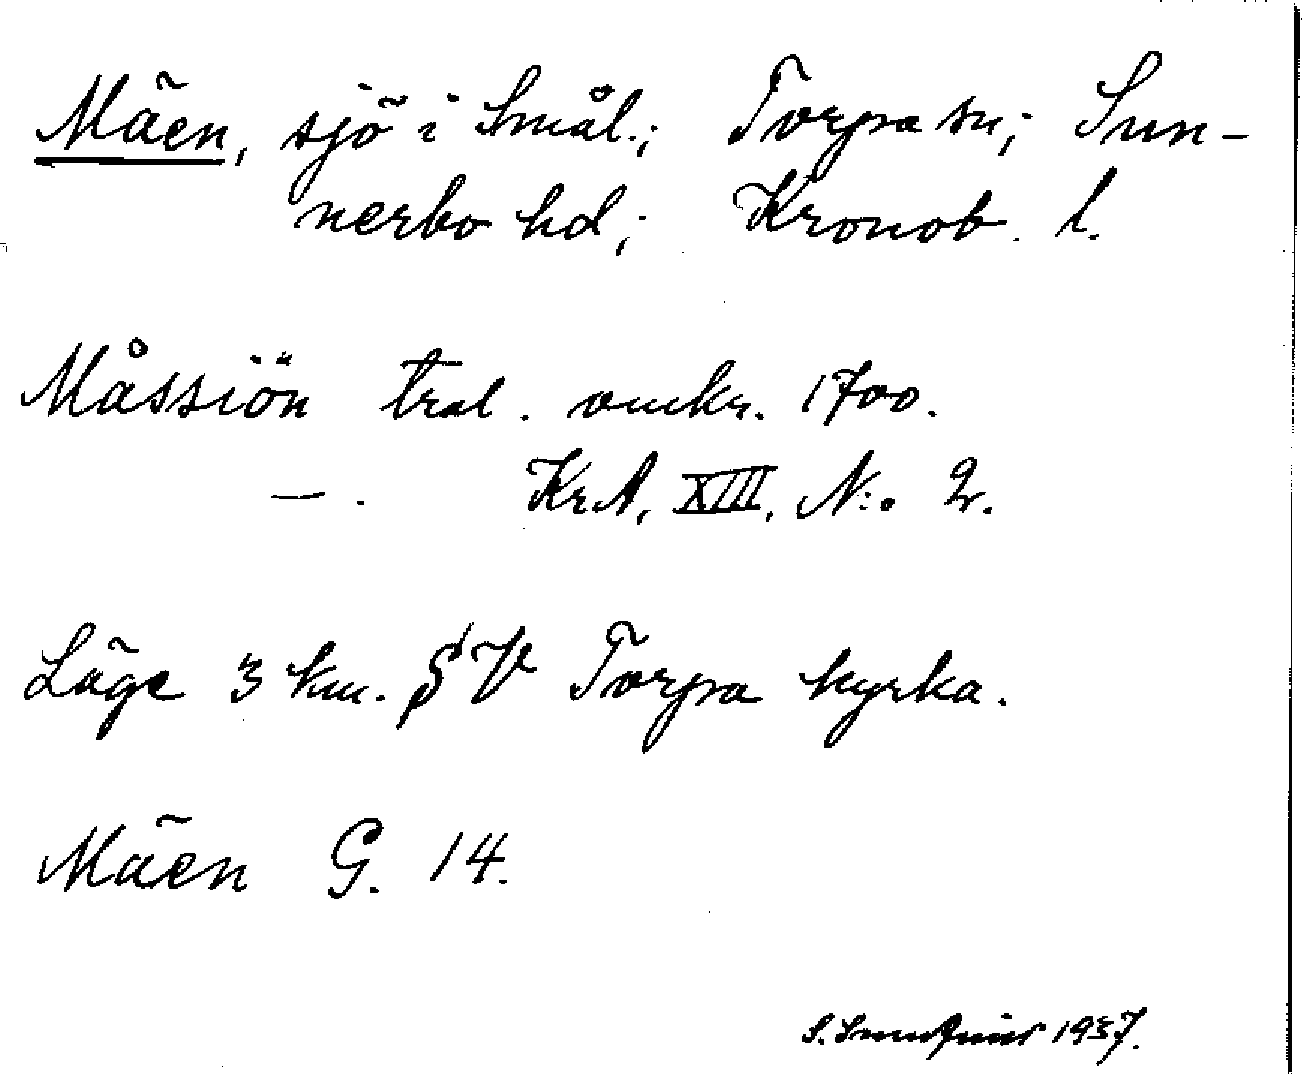 Mäen, sjö i Smål.; Torpa sn; Sun-
nerbo hd; Kronob. l.
Måssiön tral. omkr. 1700.
— . KrA, XIII, N:o 2.
Läge 3 km. SV Torpa kyrka.
Mäen G. 14.
S. 1937.